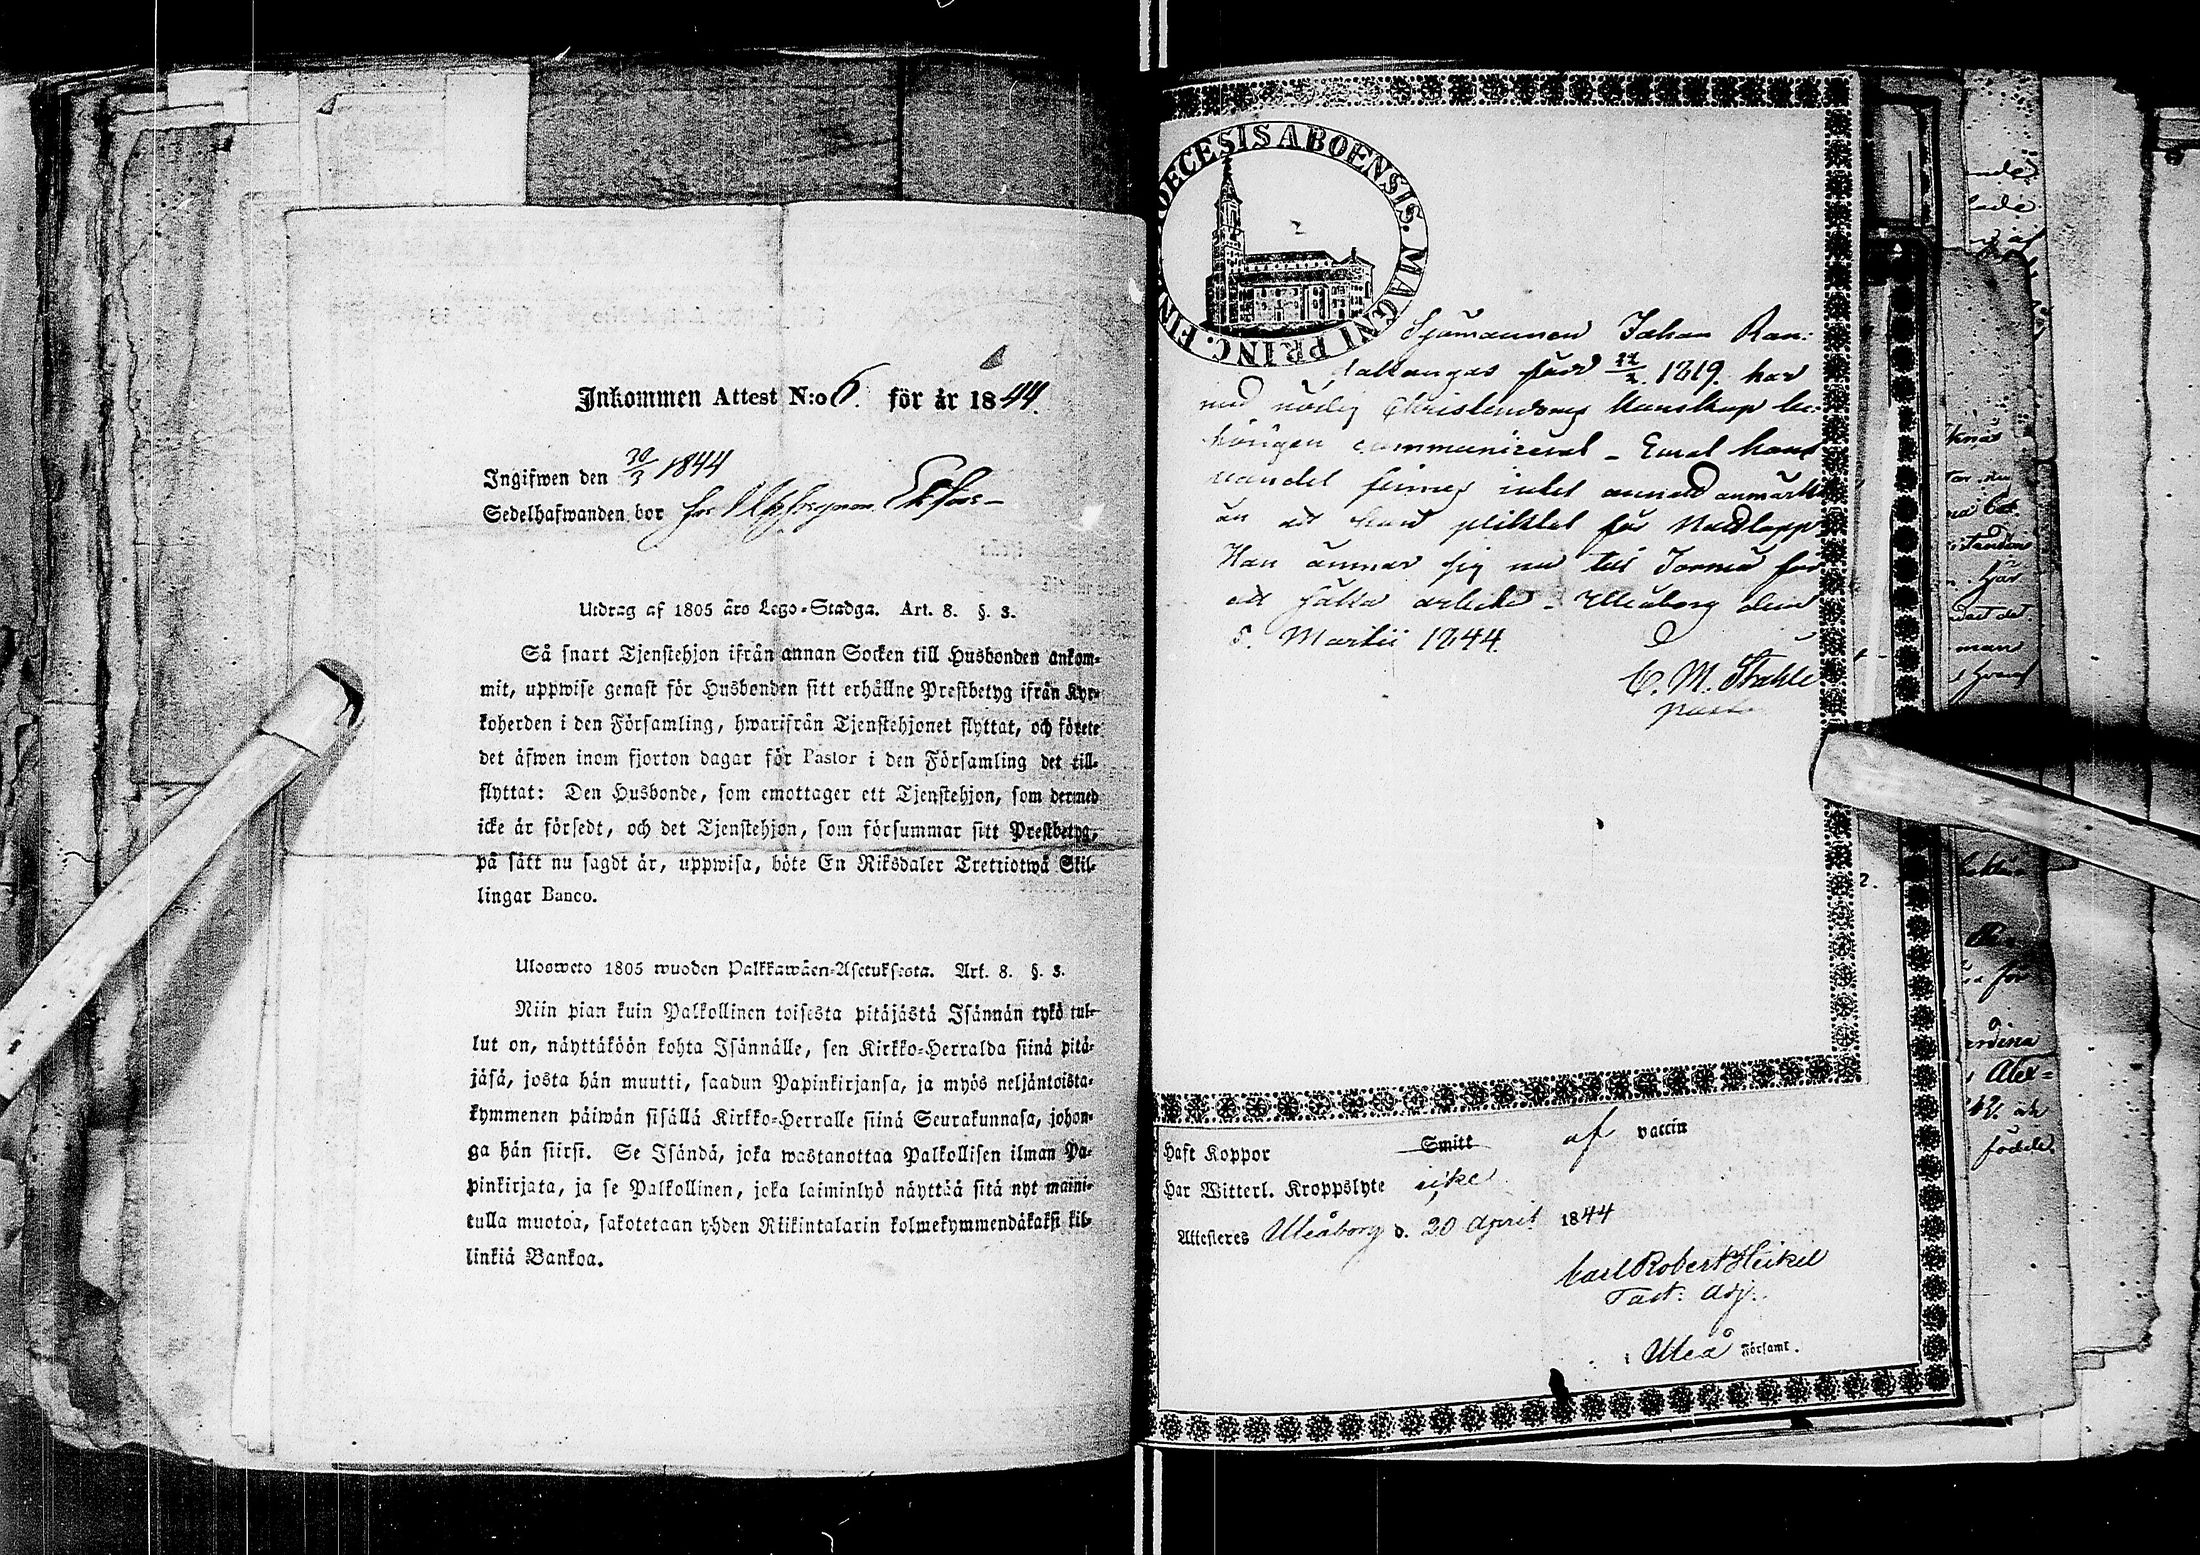 Inkommen Attest N:o 6. för år 1844.
Ingifwen den 30/3 1844
Sedelhafwanden bor
Utdrag af 1805 års Lego-Stadga. Art. 8. §. 3.
Så snart Tjenstehjon ifrån annan Socken till Husbonden ankom-
mit, uppwise genast för Husbonden sitt erhållne Prestbetyg ifrån Kyr-
koherden i den Församling, hwarifrån Tjenstehjonet flyttat, och förete
det äfwen inom fjorton dagar för Pastor i den Församling det till-
flyttat: Den Husbonde, som emottager ett Tjenstehjon, som dermed
icke är försedt, och det Tjenstehjon, som försummar sitt Prestbetyg,
på sätt nu sagdt är, uppwisa, böte En Riksdaler Trettiotwå Skil-
lingar Banco.
Ulosweto 1805 wuoden Palkkawäen-Asetuksesta. Art. 8. §. 3.
Niin pian kuin Palkollinen toisesta pitäjästä Isännän tykö tul-
lut on, näyttäköön kohta Isännälle, sen Kirkko-Herralda siinä pitä-
jäsä, josta hän muutti, saadun Papinkirjansa, ja myös neljäntoista-
kymmenen päiwän sisällä Kirkko-Herralle siinä Seurakunnasa, johon-
ga hän siirsi. Se Isändä, joka wastanottaa Palkollisen ilman Pa-
pinkirjata, ja se Palkollinen, joka laiminlyö näyttää sitä nyt maini-
tulla muotoa, sakotetaan yhden Riikintalarin kolmekymmendäkaksi kil-
linkiä Bankoa.
OECESIS ABOENSIS. MAGNI PRINC. FIN
Sjömannen Johan Ran-
född 1819. har
med nödig Christendoms Kunskap be-
hörigen communicerat - Emot hans
vandel finnes intet annat anmärkt
än att han pliktat för
Han ämnar sig nu till för
att söka arbete - Uleåborg den
5. Martii 1844
C. M. Stahle
Haft Koppor Smitt af vaccin
Har Witterl. Kroppslyte icke
Attesteres Uleåborg d. 20 April 1844
Carl Robert Heikel
Past: Adj:
i Uleå Församl.